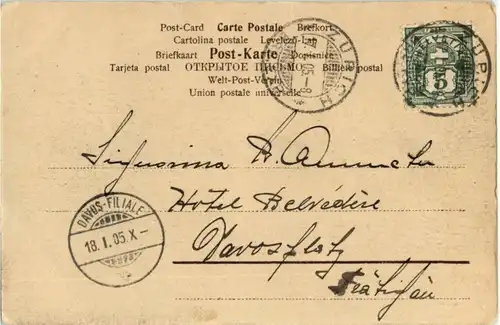 Post-Card Carte Postale Brefkort
Cartolina postale Levelező-Lap
Briefkaart Post-Karte Dopisnice
Tarjeta postal ОТКРЫТОЕ ПИСЬМО Billiete postal
Welt-Post-Verein
Union postale universelle
ZÜRICH
05-8
5
DAVOS-FILIALE
18.I.05.X-
Hotel Belvédère
Davosplatz